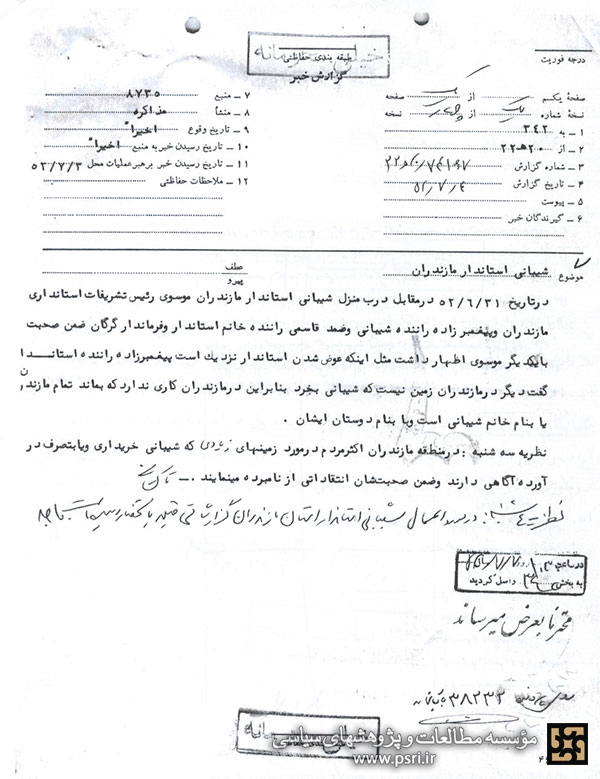 خیلی محرمانه
طبقه بندی حفاظتی
گزارش خبر
درجه فوریت
صفحه یکم از یک صفحه
نسخه شماره یک از چهار نسخه
۱ ــ به ۳۴۲
۲ ــ از ۲۲ ه ۲۰
۳ ــ شماره گزارش
۴ ــ تاریخ گزارش ۵۲/۷/۴
۵ ــ پیوست
۶ ــ گیرندگان خبر
۷ ــ منبع ۸۷۳۵
۸ ــ منشأ مذاکره
۹ ــ تاریخ وقوع اخیرا"
۱۰ ــ تاریخ رسیدن خبر به منبع اخیرا"
۱۱ ــ تاریخ رسیدن خبر برهبر عملیات محل ۵۲/۷/۳
۱۲ ــ ملاحظات حفاظتی
موضوع شیبانی استاندار مازندران
عطف
پیرو
درتاریخ ۵۲/۶/۳۱ درمقابل درب منزل شیبانی استاندار مازندران موسوی رئیس تشریفات استانداری
مازندران وپیغمبرزاده راننده شیبانی وصمد قاسمی راننده خانم استاندار وفرماندار گرگان ضمن صحبت
بایکدیگر موسوی اظهار داشت مثل اینکه عوض شدن استاندار نزدیک است پیغمبرزاده راننده استاندا
گفت دیگر درمازندران زمین نیست که شیبانی بخرد بنابراین درمازندران کاری ندارد که بماند تمام مازندران
یا بنام خانم شیبانی است ویا بنام دوستان ایشان .
نظریه سه شنبه : درمنطقه مازندران اکثرمردم درمورد زمینهای زیادی که شیبانی خریداری ویابتصرف در
آورده آگاهی دارند وضمن صحبتشان انتقاداتی از نامبرده مینمایند .ــ
نظریه شنبه : درمورد اعمال شیبانی استاندار استان مازندران گزارشاتی قبلا
در ساعت
به بخش واصل گردید
محترما بعرض میرساند
۳۸۲۳۲
مؤسسه مطالعات و پژوهشهای سیاسی
www.psri.ir